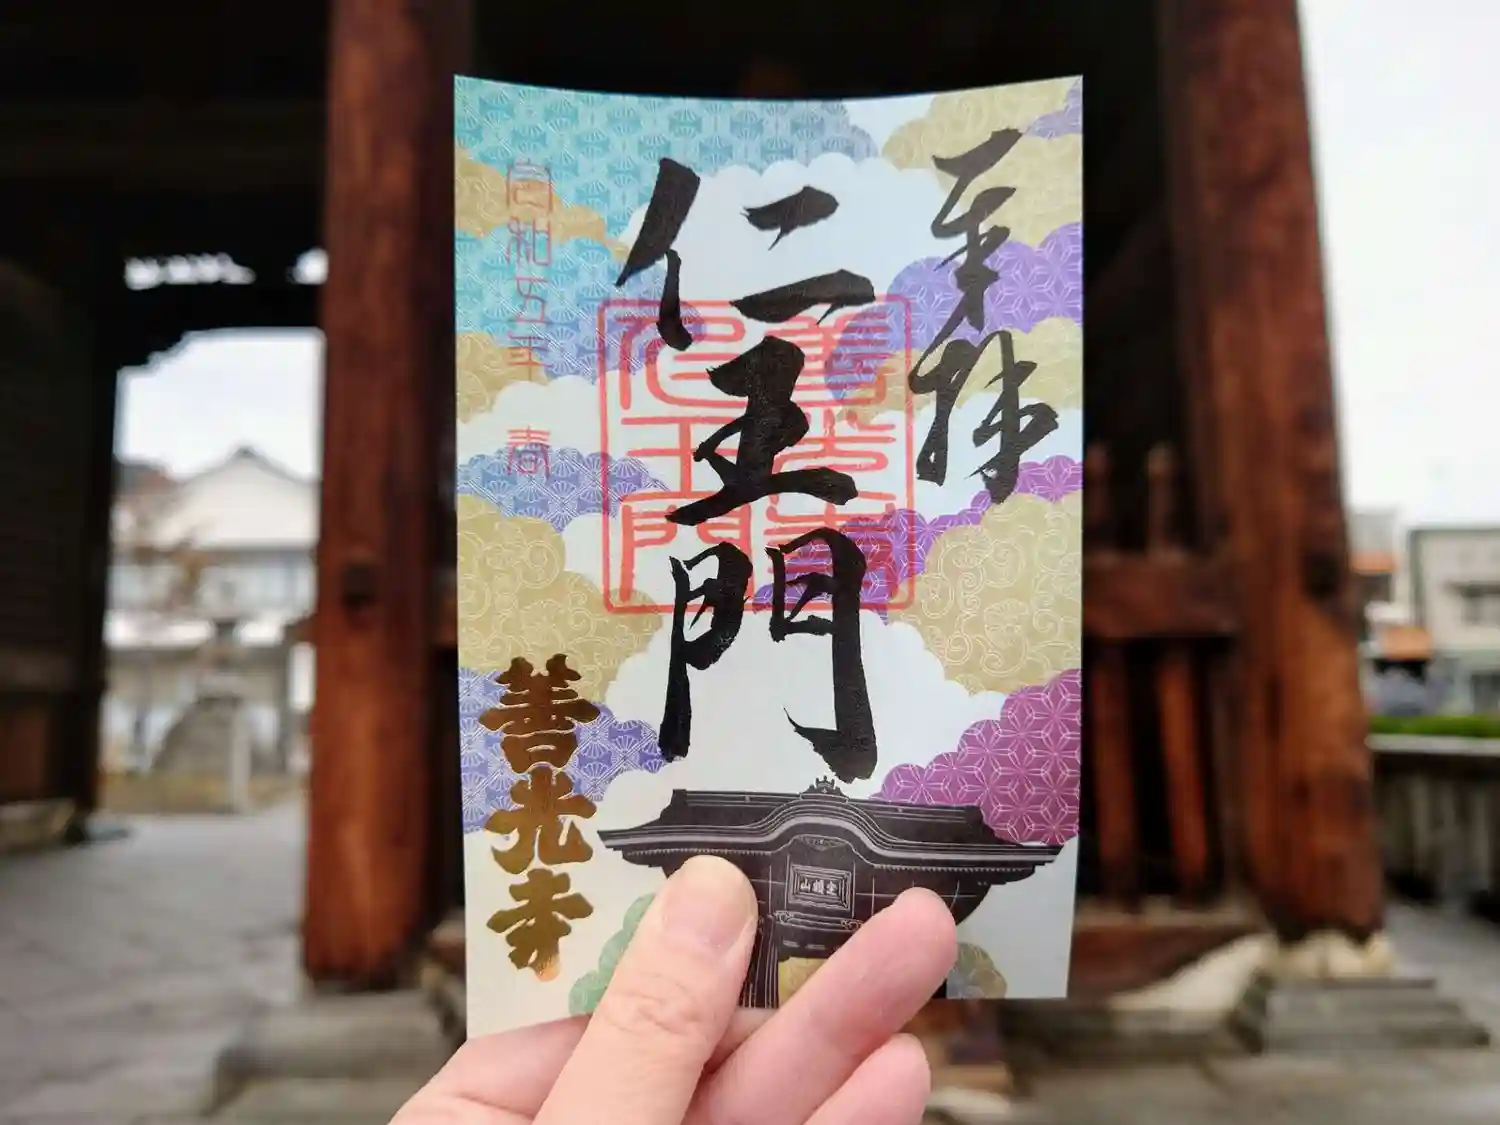 奉拝
仁王門
善光寺
仁王門
令和五年 春
善光寺
定額山